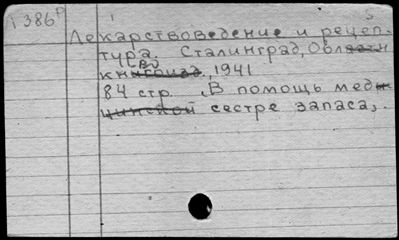 1386р 1 5
Лекарствоведение и рецеп-
тура. Сталинград, Област
книгоизд., 1941
84 стр. „В помощь меди
цинской сестре запаса„.